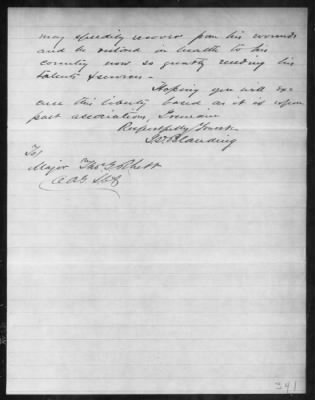 may speedily recover from his wounds
and be restored in health to his
country now so greatly needing his
talents & services -
Hoping you will ex-
cuse this liberty based as it is upon
past associations, I remain
Respectfully Yours
Blanding
To
Major Thos. G. Rhett
A A G
341